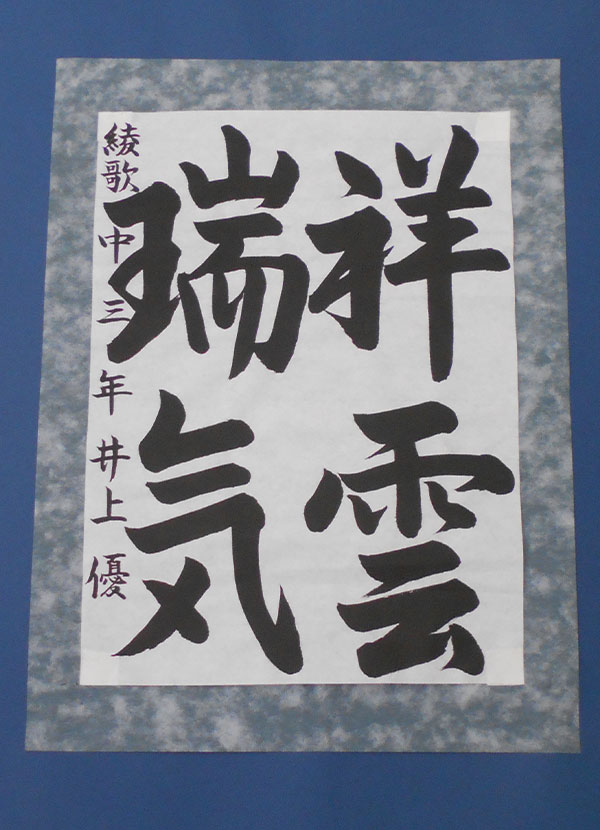 祥雲
瑞気
綾歌中三年井上優